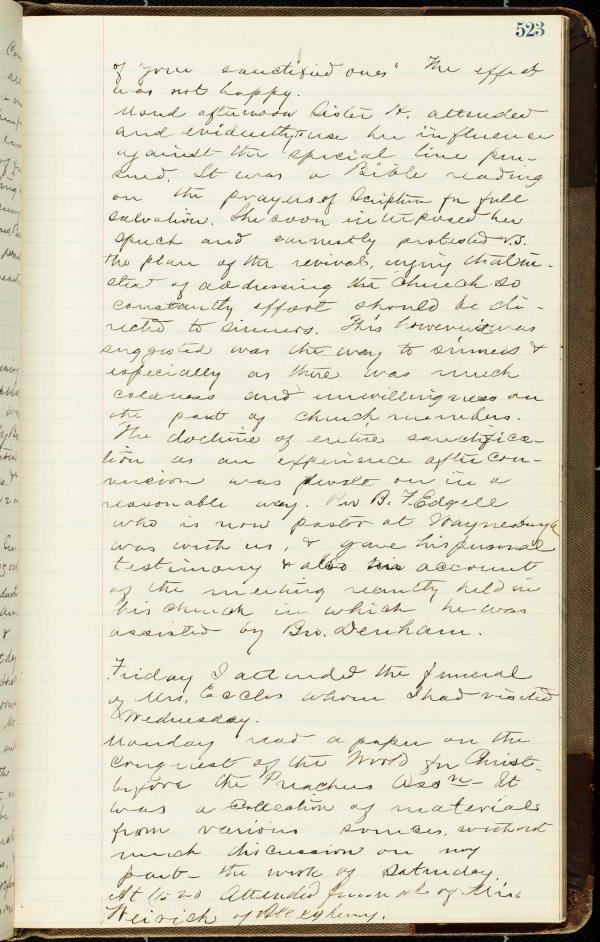 523
of your sanctified ones" The effect
was not happy.
Mond afternoon Sister H. attended
and evidently to use her influence
against the special line pur-
sued. It was a Bible reading
on the prayers of Scripture for full
salvation. She soon interposed her
speech and earnestly protested vs.
the plan of the revival, urging that in-
stead of addressing the church so
constantly effort should be di-
rected to sinners. This however was
suggested was the way to sinners &
especially as there was much
coldness and unwillingness on
the part of church members.
The doctrine of entire sanctifica-
tion as an experience after con-
version was on in a
reasonable way. Rev B. F. Edgell
who is now pastor at Waynesburg
was with us, & gave his personal
testimony & also his account
of the meeting recently held in
his church in which he was
assisted by Bro. Denham.
Friday I attended the funeral
of Mrs. Eccles whom I had visited
Wednesday.
Monday read a paper on the
Conquest of the World for Christ-
before the Preachers Assn - It
was a collection of materials
from various sources, without
much discussion on my
part - the work of Saturday.
At attended funeral of Mrs.
Weirich of Allegheny.